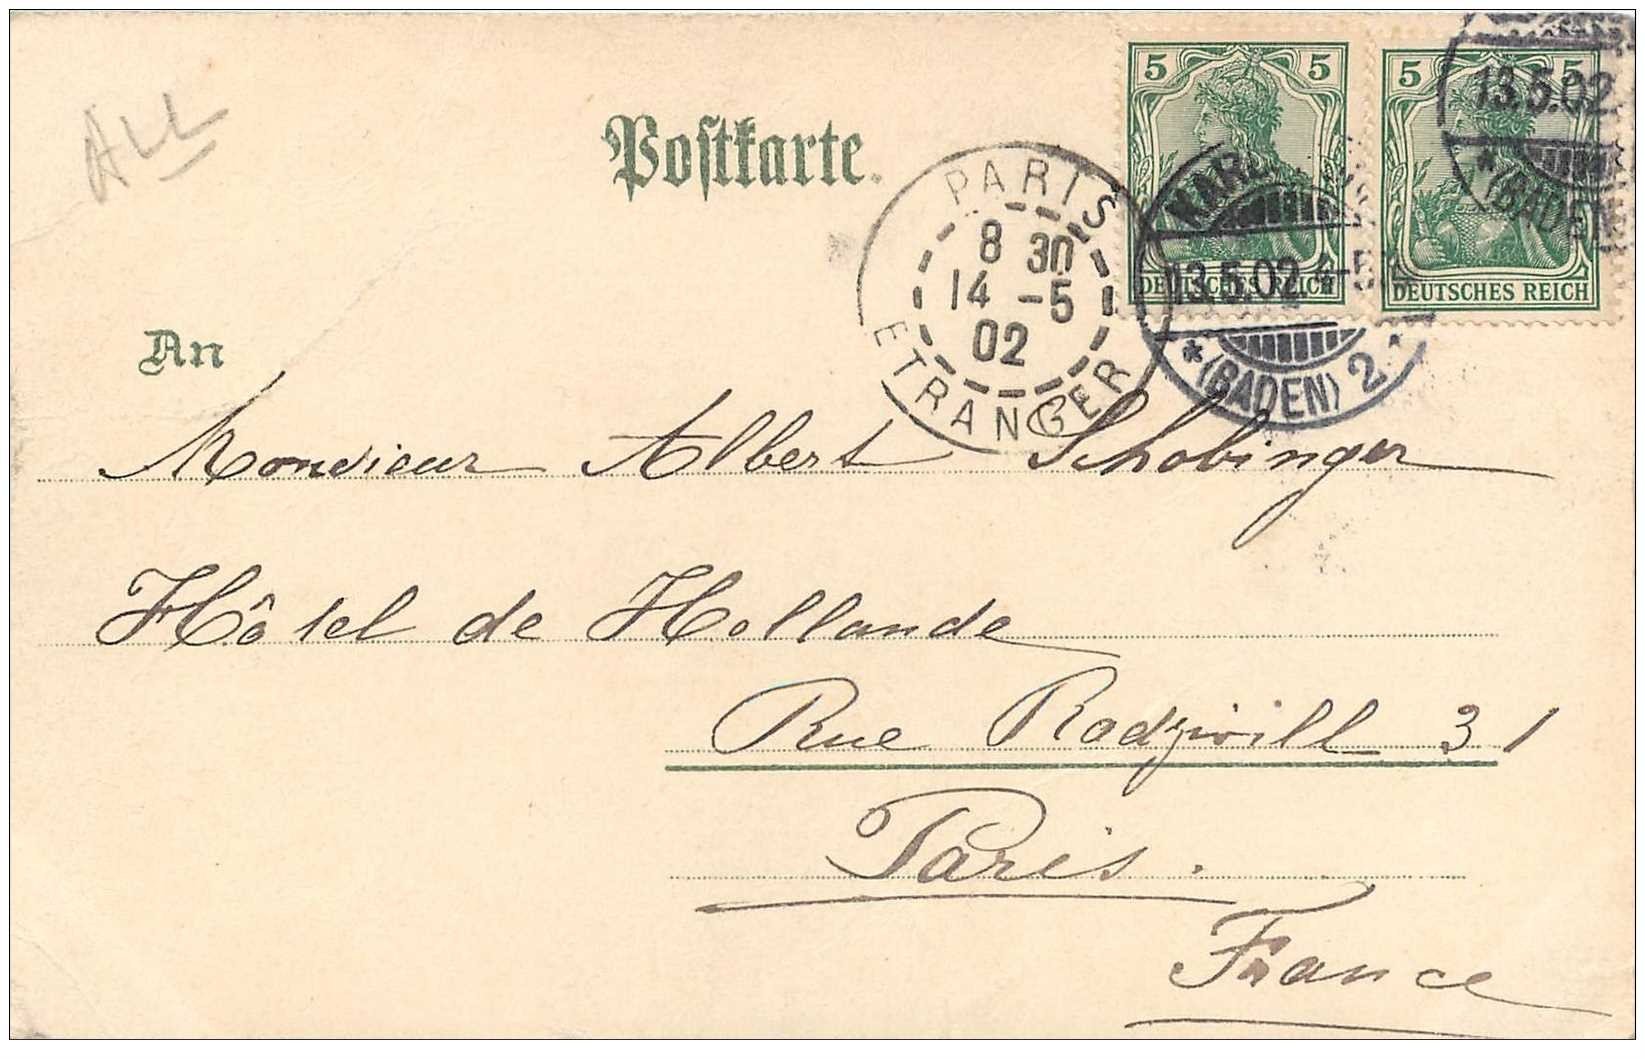 ALL
Postkarte.
5 5
DEUTSCHES REICH
5 5
DEUTSCHES REICH
13.5.02
* (BADEN
PARIS
8 30
14 -5
02
ETRANGER
13.5.02. 4-5
* (BADEN) 2 *
An
Monsieur Albert Schobinger
Hôtel de Hollande
Rue Radziwill 31
Paris.
France